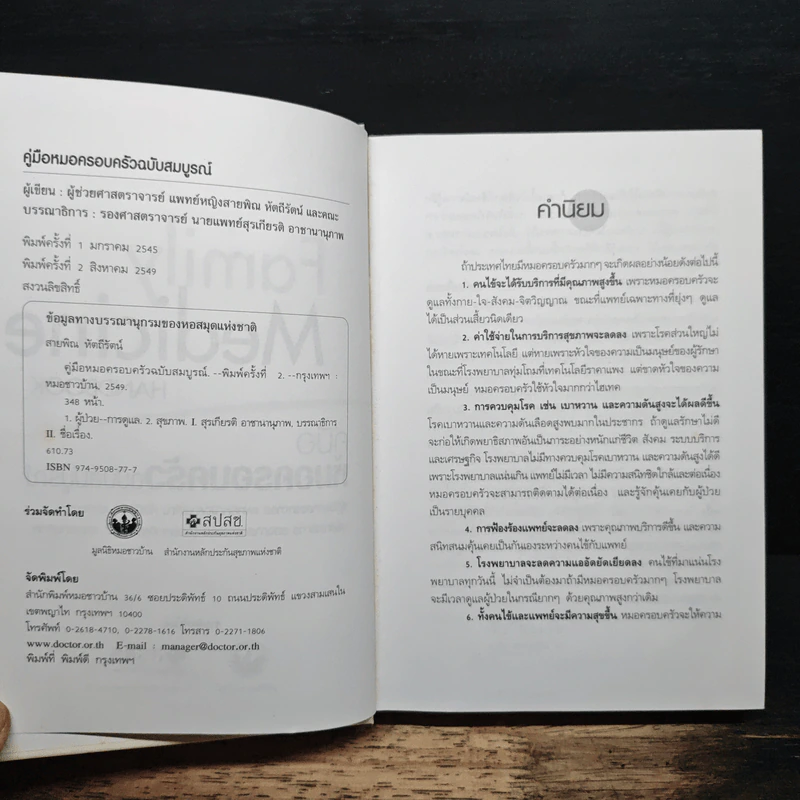 คู่มือหมอครอบครัวฉบับสมบูรณ์
ผู้เขียน : ผู้ช่วยศาสตราจารย์ แพทย์หญิงสายพิณ หัตถีรัตน์ และคณะ
บรรณาธิการ : รองศาสตราจารย์ นายแพทย์สุรเกียรติ อาชานานุภาพ
พิมพ์ครั้งที่ 1 มกราคม 2545
พิมพ์ครั้งที่ 2 สิงหาคม 2549
สงวนลิขสิทธิ์
ข้อมูลทางบรรณานุกรมของหอสมุดแห่งชาติ
สายพิณ หัตถีรัตน์
คู่มือหมอครอบครัวฉบับสมบูรณ์. --พิมพ์ครั้งที่ 2. --กรุงเทพฯ :
หมอชาวบ้าน, 2549.
348 หน้า.
1. ผู้ป่วย--การดูแล. 2. สุขภาพ. I. สุรเกียรติ อาชานานุภาพ, บรรณาธิการ
II. ชื่อเรื่อง.
610.73
ISBN 974-9508-77-7
ร่วมจัดทำโดย
สปสช.
สำนักงานหลักประกันสุขภาพแห่งชาติ
มูลนิธิหมอชาวบ้าน สำนักงานหลักประกันสุขภาพแห่งชาติ
จัดพิมพ์โดย
สำนักพิมพ์หมอชาวบ้าน 36/6 ซอยประดิพัทธ์ 10 ถนนประดิพัทธ์ แขวงสามเสนใน
เขตพญาไท กรุงเทพฯ 10400
โทรศัพท์ 0-2618-4710, 0-2278-1616 โทรสาร 0-2271-1806
www.doctor.or.th E-mail : manager@doctor.or.th
พิมพ์ที่ พิมพ์ดี กรุงเทพฯ
คำนิยม
ถ้าประเทศไทยมีหมอครอบครัวมากๆ จะเกิดผลอย่างน้อยดังต่อไปนี้
1. คนไข้จะได้รับบริการที่มีคุณภาพสูงขึ้น เพราะหมอครอบครัวจะ
ดูแลทั้งกาย-ใจ-สังคม-จิตวิญญาณ ขณะที่แพทย์เฉพาะทางที่ยุ่งๆ ดูแล
ได้เป็นส่วนเสี้ยวนิดเดียว
2. ค่าใช้จ่ายในการบริการสุขภาพจะลดลง เพราะโรคส่วนใหญ่ไม่
ได้หายเพราะเทคโนโลยี แต่หายเพราะหัวใจของความเป็นมนุษย์ของผู้รักษา
ในขณะที่โรงพยาบาลทุ่มโถมที่เทคโนโลยีราคาแพง แต่ขาดหัวใจของความ
เป็นมนุษย์ หมอครอบครัวใช้หัวใจมากกว่าไฮเทค
3. การควบคุมโรค เช่น เบาหวาน และความดันสูงจะได้ผลดีขึ้น
โรคเบาหวานและความดันเลือดสูงพบมากในประชากร ถ้าดูแลรักษาไม่ดี
จะก่อให้เกิดพยาธิสภาพอันเป็นภาระอย่างหนักแก่ชีวิต สังคม ระบบบริการ
และเศรษฐกิจ โรงพยาบาลไม่มีทางควบคุมโรคเบาหวาน และความดันสูงได้ดี
เพราะโรงพยาบาลแน่นเกิน แพทย์ไม่มีเวลา ไม่มีความสนิทชิดใกล้และต่อเนื่อง
หมอครอบครัวจะสามารถติดตามได้ต่อเนื่อง และรู้จักคุ้นเคยกับผู้ป่วย
เป็นรายบุคคล
4. การฟ้องร้องแพทย์จะลดลง เพราะคุณภาพบริการดีขึ้น และความ
สนิทสนมคุ้นเคยเป็นกันเองระหว่างคนไข้กับแพทย์
5. โรงพยาบาลจะลดความแออัดยัดเยียดลง คนไข้ที่มาแน่นโรง
พยาบาลทุกวันนี้ ไม่จำเป็นต้องมาถ้ามีหมอครอบครัวมากๆ โรงพยาบาล
จะมีเวลาดูแลผู้ป่วยในกรณียากๆ ด้วยคุณภาพสูงกว่าเดิม
6. ทั้งคนไข้และแพทย์จะมีความสุขขึ้น หมอครอบครัวจะให้ความ